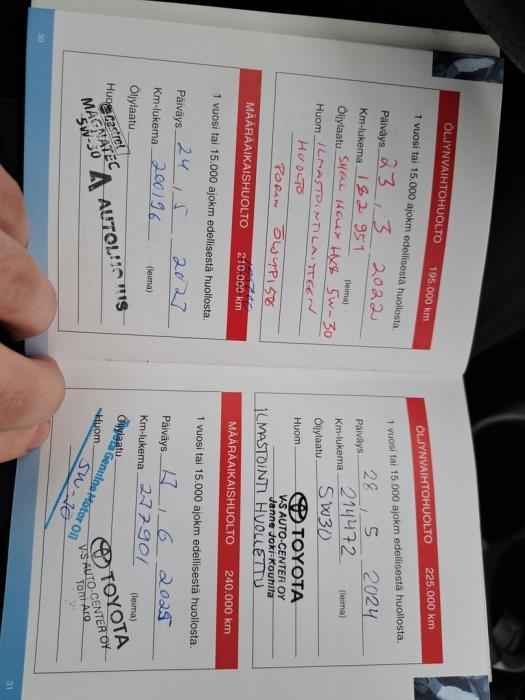 ÖLJYNVAIHTOHUOLTO 195.000 km
1 vuosi tai 15.000 ajokm edellisestä huollosta.
Päiväys 23 . 3 2022
Km-lukema 182 951
(leima)
Öljylaatu SHELL HELIX HX8 5W-30
Huom ILMASTOINTILAITTEEN
HUOLTO
PORIN
MÄÄRÄAIKAISHUOLTO 210.000 km
1 vuosi tai 15.000 ajokm edellisestä huollosta.
Päiväys 24 . 5 2023
Km-lukema 200196
(leima)
Öljylaatu
Huom Castrol
MAGNATEC
5W-30
30
ÖLJYNVAIHTOHUOLTO 225.000 km
1 vuosi tai 15.000 ajokm edellisestä huollosta.
Päiväys 28 . 5 2024
Km-lukema 214472
(leima)
Öljylaatu 5W30
Huom
TOYOTA
VS AUTO-CENTER OY
Janne Joki-Kouhila
ILMASTOINTI HUOLLETTU
MÄÄRÄAIKAISHUOLTO 240.000 km
1 vuosi tai 15.000 ajokm edellisestä huollosta.
Päiväys 17 . 6 2025
Km-lukema 237901
(leima)
Öljylaatu
Genuine Motor Oil
Huom
TOYOTA
VS AUTO-CENTER OY
Toni Aro
31